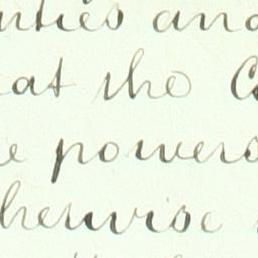 nties and
at the C
e powers
herwise